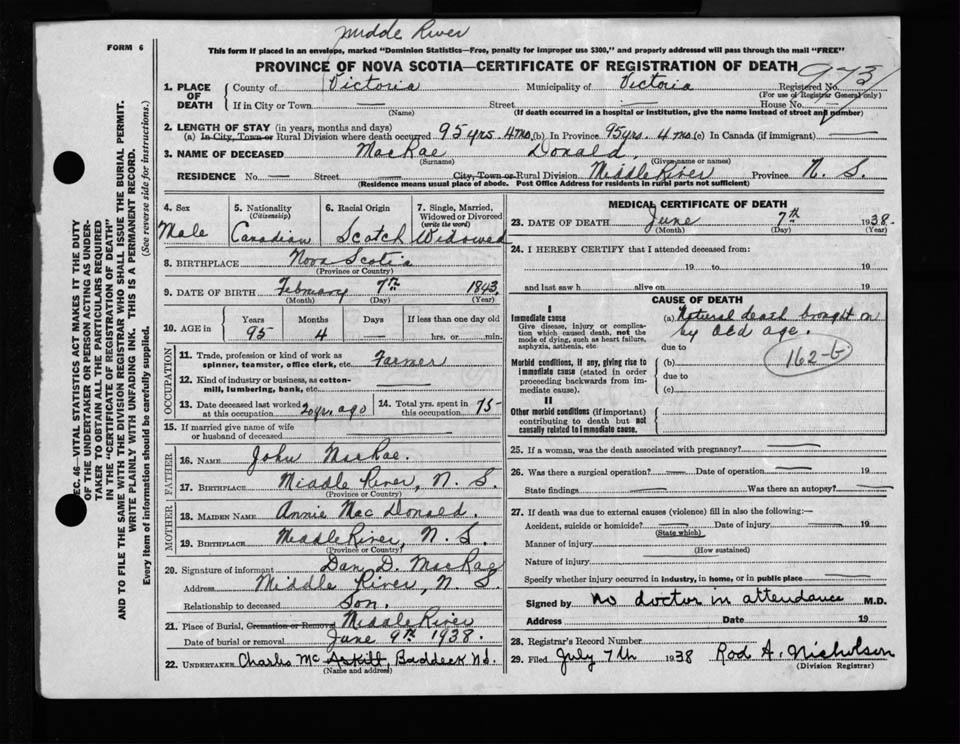 Middle River
FORM 6
This form if placed in an envelope, marked "Dominion Statistics—Free, penalty for improper use $300," and properly addressed will pass through the mail "FREE"
PROVINCE OF NOVA SCOTIA—CERTIFICATE OF REGISTRATION OF DEATH
973
1. PLACE OF DEATH
County of Victoria Municipality of Victoria Registered No.
(For use of Registrar General only)
If in City or Town — Street — House No. —
(Name) (If death occurred in a hospital or institution, give the name instead of street and number)
2. LENGTH OF STAY (in years, months and days)
(a) In City, Town or Rural Division where death occurred 95 yrs. 4 mo. (b) In Province 95 yrs. 4 mo. (c) In Canada (if immigrant) —
3. NAME OF DECEASED MacRae Donald.
(Surname) (Given name or names)
RESIDENCE No. — Street — City, Town or Rural Division Middle River Province N. S.
(Residence means usual place of abode. Post Office Address for residents in rural parts not sufficient)
SEC. 46—VITAL STATISTICS ACT MAKES IT THE DUTY
OF THE UNDERTAKER OR PERSON ACTING AS UNDER-
TAKER TO OBTAIN ALL THE PARTICULARS REQUIRED
IN THE "CERTIFICATE OF REGISTRATION OF DEATH"
AND TO FILE THE SAME WITH THE DIVISION REGISTRAR WHO SHALL ISSUE THE BURIAL PERMIT.
WRITE PLAINLY WITH UNFADING INK. THIS IS A PERMANENT RECORD.
Every item of information should be carefully supplied. (See reverse side for instructions.)
4. Sex
Male
5. Nationality
(Citizenship)
Canadian
6. Racial Origin
Scotch
7. Single, Married,
Widowed or Divorced
(write the word)
Widowed
8. BIRTHPLACE Nova Scotia
(Province or Country)
9. DATE OF BIRTH February 7th 1843
(Month) (Day) (Year)
10. AGE in
Years Months Days If less than one day old
95 4 — hrs. or min.
OCCUPATION
11. Trade, profession or kind of work as
spinner, teamster, office clerk, etc. Farmer
12. Kind of industry or business, as cotton-
mill, lumbering, bank, etc. —
13. Date deceased last worked
at this occupation 20 yrs. ago
14. Total yrs. spent in
this occupation 75
15. If married give name of wife
or husband of deceased
FATHER
16. NAME John MacRae.
17. BIRTHPLACE Middle River, N. S.
(Province or Country)
MOTHER
18. MAIDEN NAME Annie MacDonald.
19. BIRTHPLACE Middle River, N. S.
(Province or Country)
20. Signature of informant Dan D. MacRae
Address Middle River, N. S.
Relationship to deceased Son.
21. Place of Burial, Cremation or Removal Middle River
Date of burial or removal June 9th 1938.
22. UNDERTAKER Charles McAskill, Baddeck N.S.
(Name and address)
MEDICAL CERTIFICATE OF DEATH
23. DATE OF DEATH June 7th 1938.
(Month) (Day) (Year)
24. I HEREBY CERTIFY that I attended deceased from:
19 to 19
and last saw h alive on 19
CAUSE OF DEATH
I
Immediate cause
Give disease, injury or complica-
tion which caused death, not the
mode of dying, such as heart failure,
asphyxia, asthenia, etc.
(a) Natural death brought on
by old age.
due to
162-b
Morbid conditions, if any, giving rise to
immediate cause (stated in order
proceeding backwards from im-
mediate cause).
(b)
due to
(c)
II
Other morbid conditions (if important)
contributing to death but not
causally related to immediate cause.
25. If a woman, was the death associated with pregnancy? —
26. Was there a surgical operation? — Date of operation — 19
State findings — Was there an autopsy? —
27. If death was due to external causes (violence) fill in also the following:—
Accident, suicide or homicide? — Date of injury — 19
(State which)
Manner of injury
(How sustained)
Nature of injury
Specify whether injury occurred in industry, in home, or in public place —
Signed by No doctor in attendance M.D.
Address Date 19
28. Registrar's Record Number
29. Filed July 7th 1938 Rod A. Nicholson
(Division Registrar)